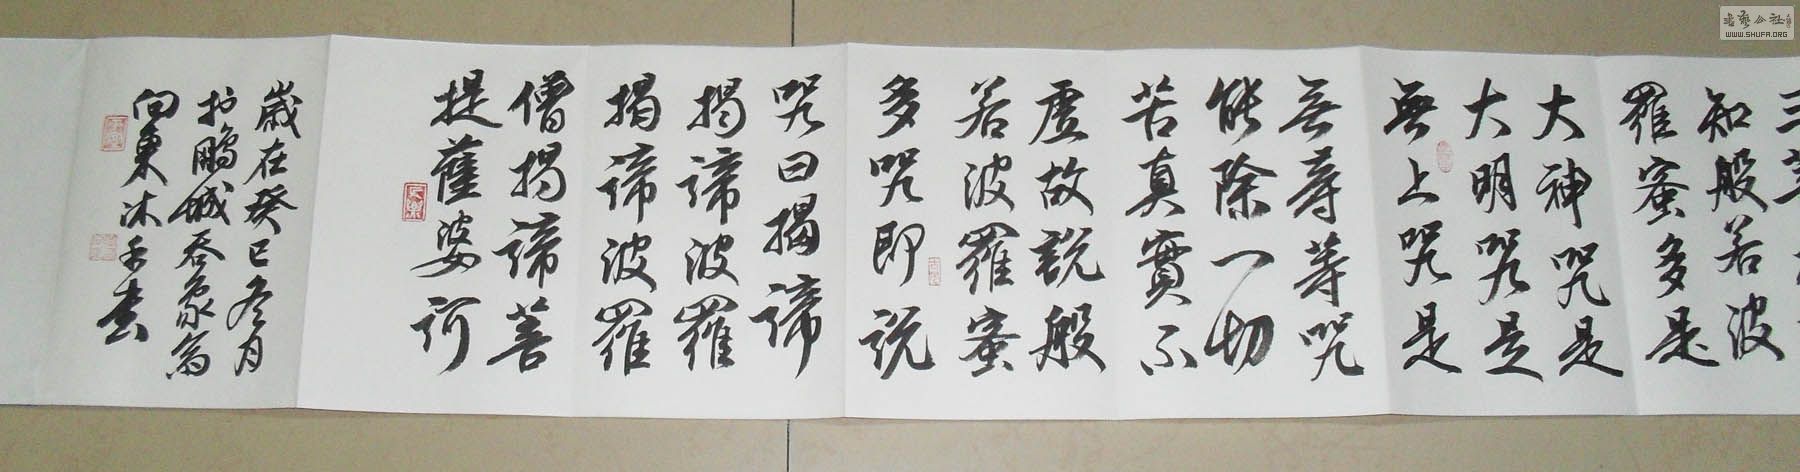 三
知般若波
羅蜜多是
大神咒是
大明咒是
無上咒是
無等等咒
能除一切
苦真實不
虛故說般
若波羅蜜
多咒即說
咒曰揭諦
揭諦波羅
揭諦波羅
僧揭諦菩
提薩婆訶
歲在癸巳冬月
於鵬城
向東沐手書
书艺公社
WWW.SHUFA.ORG